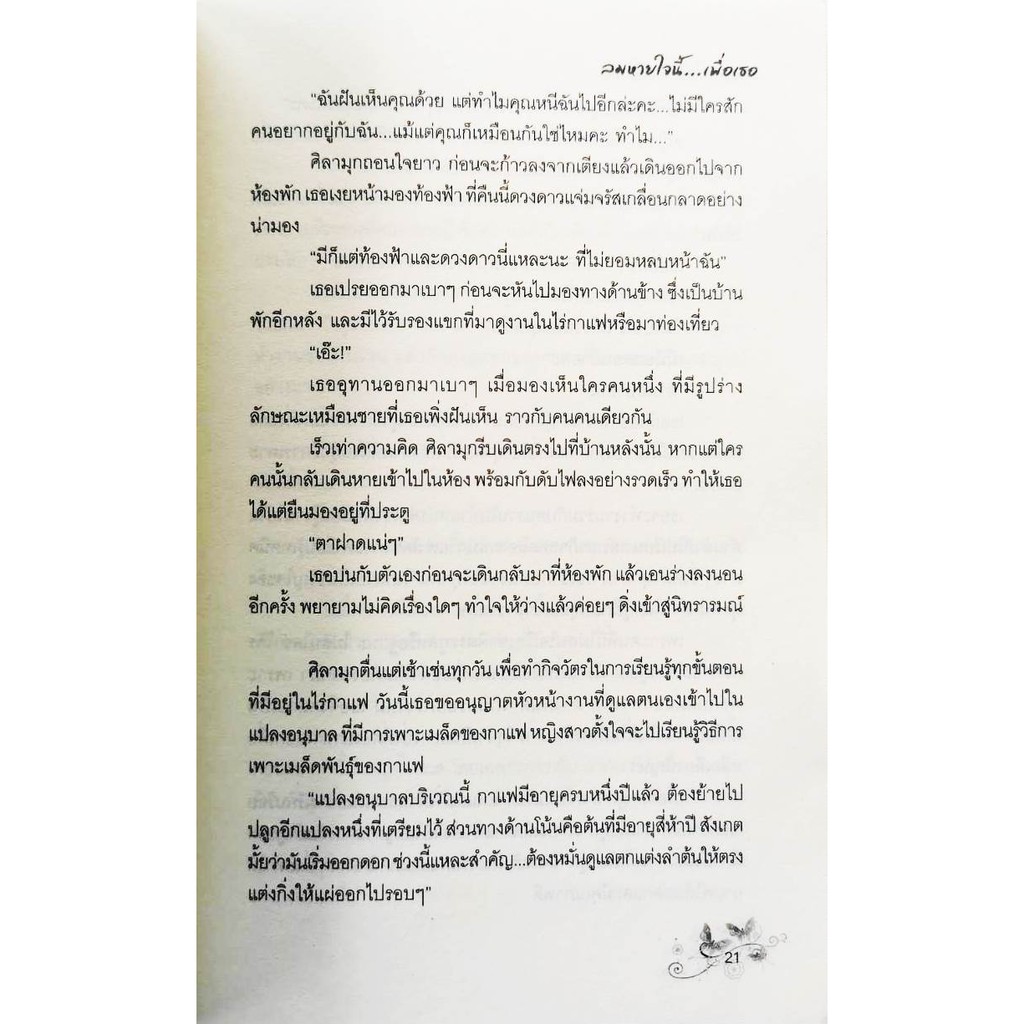 ลมหายใจนี้...เพื่อเธอ
“ฉันฝันเห็นคุณด้วย แต่ทำไมคุณหนีฉันไปอีกล่ะคะ...ไม่มีใครสัก
คนอยากอยู่กับฉัน...แม้แต่คุณก็เหมือนกันใช่ไหมคะ ทำไม...”
ศิลามุกถอนใจยาว ก่อนจะก้าวลงจากเตียงแล้วเดินออกไปจาก
ห้องพัก เธอเงยหน้ามองท้องฟ้า ที่คืนนี้ดวงดาวแจ่มจรัสเกลื่อนกลาดอย่าง
น่ามอง
“มีก็แต่ท้องฟ้าและดวงดาวนี่แหละนะ ที่ไม่ยอมหลบหน้าฉัน”
เธอเปรยออกมาเบาๆ ก่อนจะหันไปมองทางด้านข้าง ซึ่งเป็นบ้าน
พักอีกหลัง และมีไว้รับรองแขกที่มาดูงานในไร่กาแฟหรือมาท่องเที่ยว
“เอ๊ะ!”
เธออุทานออกมาเบาๆ เมื่อมองเห็นใครคนหนึ่ง ที่มีรูปร่าง
ลักษณะเหมือนชายที่เธอเพิ่งฝันเห็น ราวกับคนคนเดียวกัน
เร็วเท่าความคิด ศิลามุกรีบเดินตรงไปที่บ้านหลังนั้น หากแต่ใคร
คนนั้นกลับเดินหายเข้าไปในห้อง พร้อมกับดับไฟลงอย่างรวดเร็ว ทำให้เธอ
ได้แต่ยืนมองอยู่ที่ประตู
“ตาฝาดแน่ๆ”
เธอบ่นกับตัวเองก่อนจะเดินกลับมาที่ห้องพัก แล้วเอนร่างลงนอน
อีกครั้ง พยายามไม่คิดเรื่องใดๆ ทำใจให้ว่างแล้วค่อยๆ ดิ่งเข้าสู่นิทรารมณ์
ศิลามุกตื่นแต่เช้าเช่นทุกวัน เพื่อทำกิจวัตรในการเรียนรู้ทุกขั้นตอน
ที่มีอยู่ในไร่กาแฟ วันนี้เธอขออนุญาตหัวหน้างานที่ดูแลตนเองเข้าไปใน
แปลงอนุบาล ที่มีการเพาะเมล็ดของกาแฟ หญิงสาวตั้งใจจะไปเรียนรู้วิธีการ
เพาะเมล็ดพันธุ์ของกาแฟ
“แปลงอนุบาลบริเวณนี้ กาแฟมีอายุครบหนึ่งปีแล้ว ต้องย้ายไป
ปลูกอีกแปลงหนึ่งที่เตรียมไว้ ส่วนทางด้านโน้นคือต้นที่มีอายุสี่ห้าปี สังเกต
มั้ยว่ามันเริ่มออกดอก ช่วงนี้แหละสำคัญ...ต้องหมั่นดูแลตกแต่งลำต้นให้ตรง
แต่งกิ่งให้แผ่ออกไปรอบๆ”
21